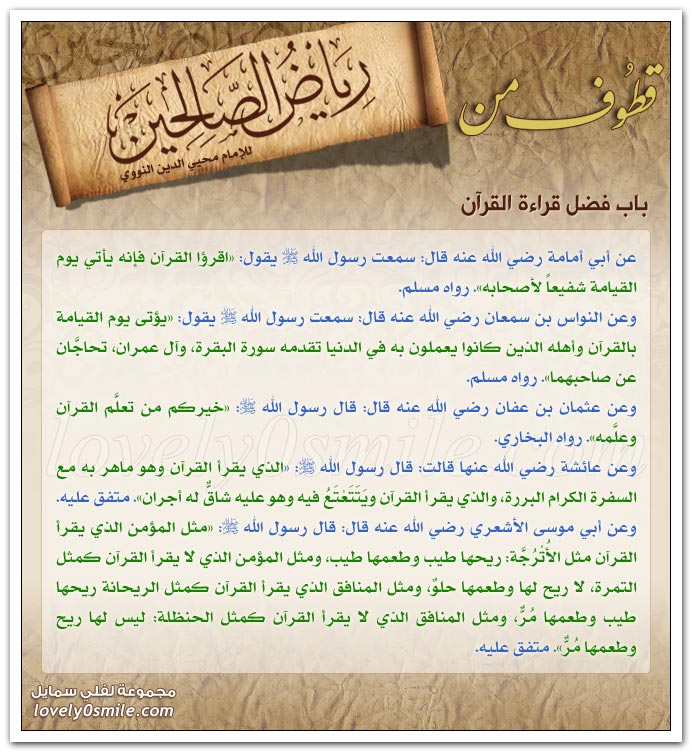 قطوف من
رياض الصالحين
للإمام محيي الدين النووي
باب فضل قراءة القرآن
عن أبي أمامة رضي الله عنه قال: سمعت رسول الله ﷺ يقول: «اقرؤا القرآن فإنه يأتي يوم
القيامة شفيعاً لأصحابه». رواه مسلم.
وعن النواس بن سمعان رضي الله عنه قال: سمعت رسول الله ﷺ يقول: «يؤتى يوم القيامة
بالقرآن وأهله الذين كانوا يعملون به في الدنيا تقدمه سورة البقرة، وآل عمران، تحاجَّان
عن صاحبهما». رواه مسلم.
وعن عثمان بن عفان رضي الله عنه قال: قال رسول الله ﷺ: «خيركم من تعلَّم القرآن
وعلَّمه». رواه البخاري.
وعن عائشة رضي الله عنها قالت: قال رسول الله ﷺ: «الذي يقرأ القرآن وهو ماهر به مع
السفرة الكرام البررة، والذي يقرأ القرآن ويَتَتَعْتَعُ فيه وهو عليه شاقٌّ له أجران». متفق عليه.
وعن أبي موسى الأشعري رضي الله عنه قال: قال رسول الله ﷺ: «مثل المؤمن الذي يقرأ
القرآن مثل الأُتْرُجَّة: ريحها طيب وطعمها طيب، ومثل المؤمن الذي لا يقرأ القرآن كمثل
التمرة، لا ريح لها وطعمها حلوٌ، ومثل المنافق الذي يقرأ القرآن كمثل الريحانة ريحها
طيب وطعمها مُرٌّ، ومثل المنافق الذي لا يقرأ القرآن كمثل الحنظلة: ليس لها ريح
وطعمها مُرٌّ». متفق عليه.
lovely0smile.com
مجموعة لفلي سمايل
lovely0smile.com